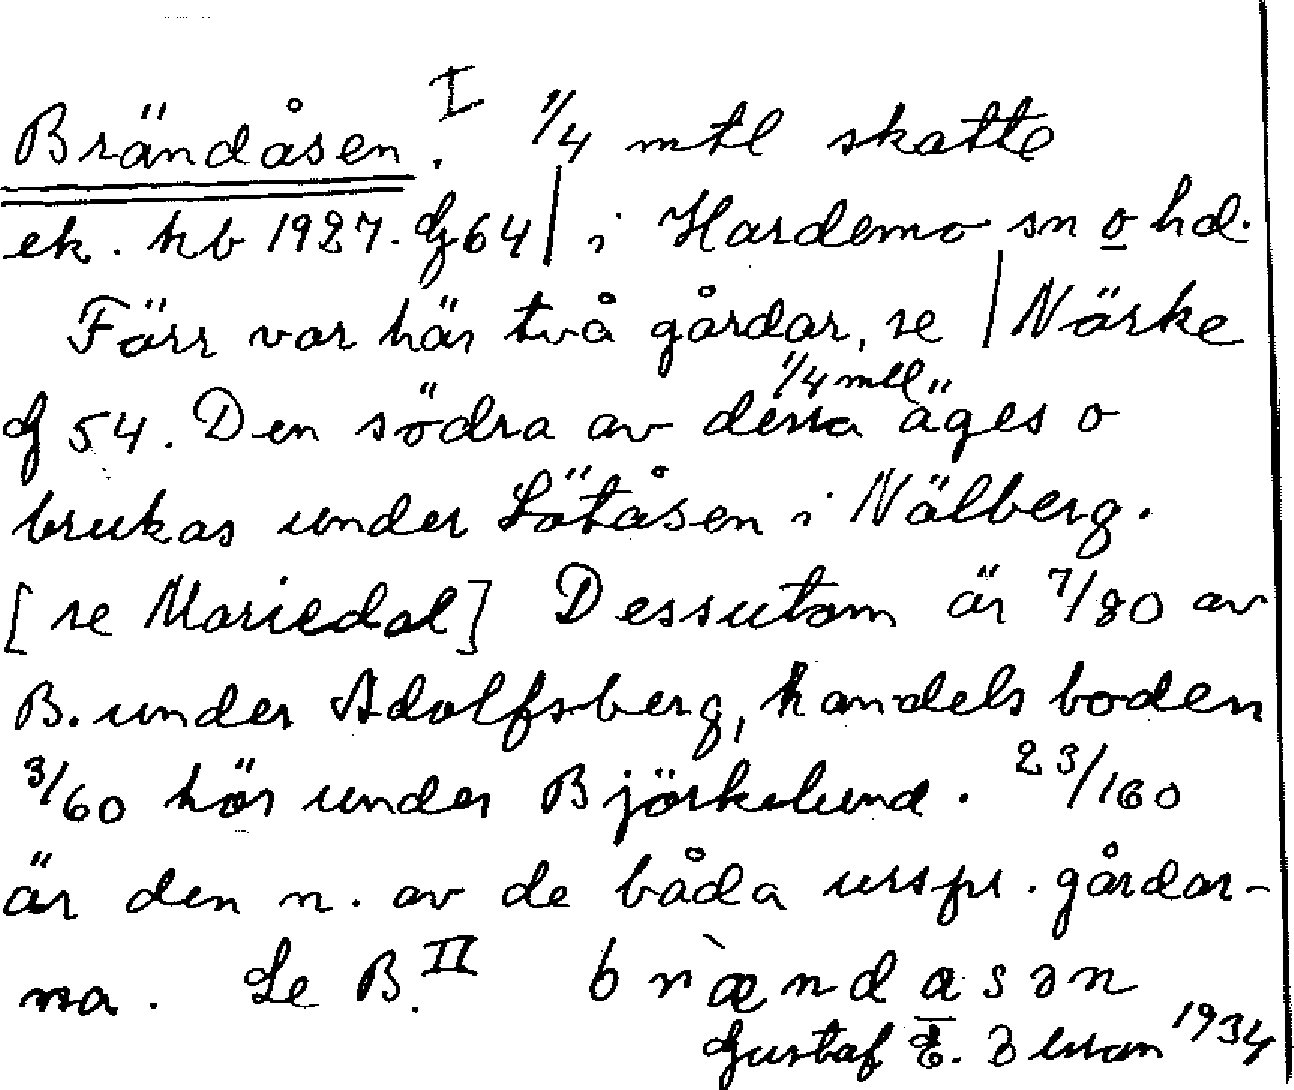 Brändåsen.I 1/4 mtl skatte
ek. kb 1927. G 64 | i Hardemo sn o hd.
Förr var här två gårdar, se | Närke
G 54. Den södra av dessa 1/4 mtl äges o
brukas under Lötåsen i Nälberg.
[se Mariedal] Dessutom är 7/80 av
B. under Adolfsberg, handelsboden
3/60 hör under Björkelund. 23/160
är den n. av de båda urspr. gårdar-
na. Se B.II brændasən
Gustaf E. 1934